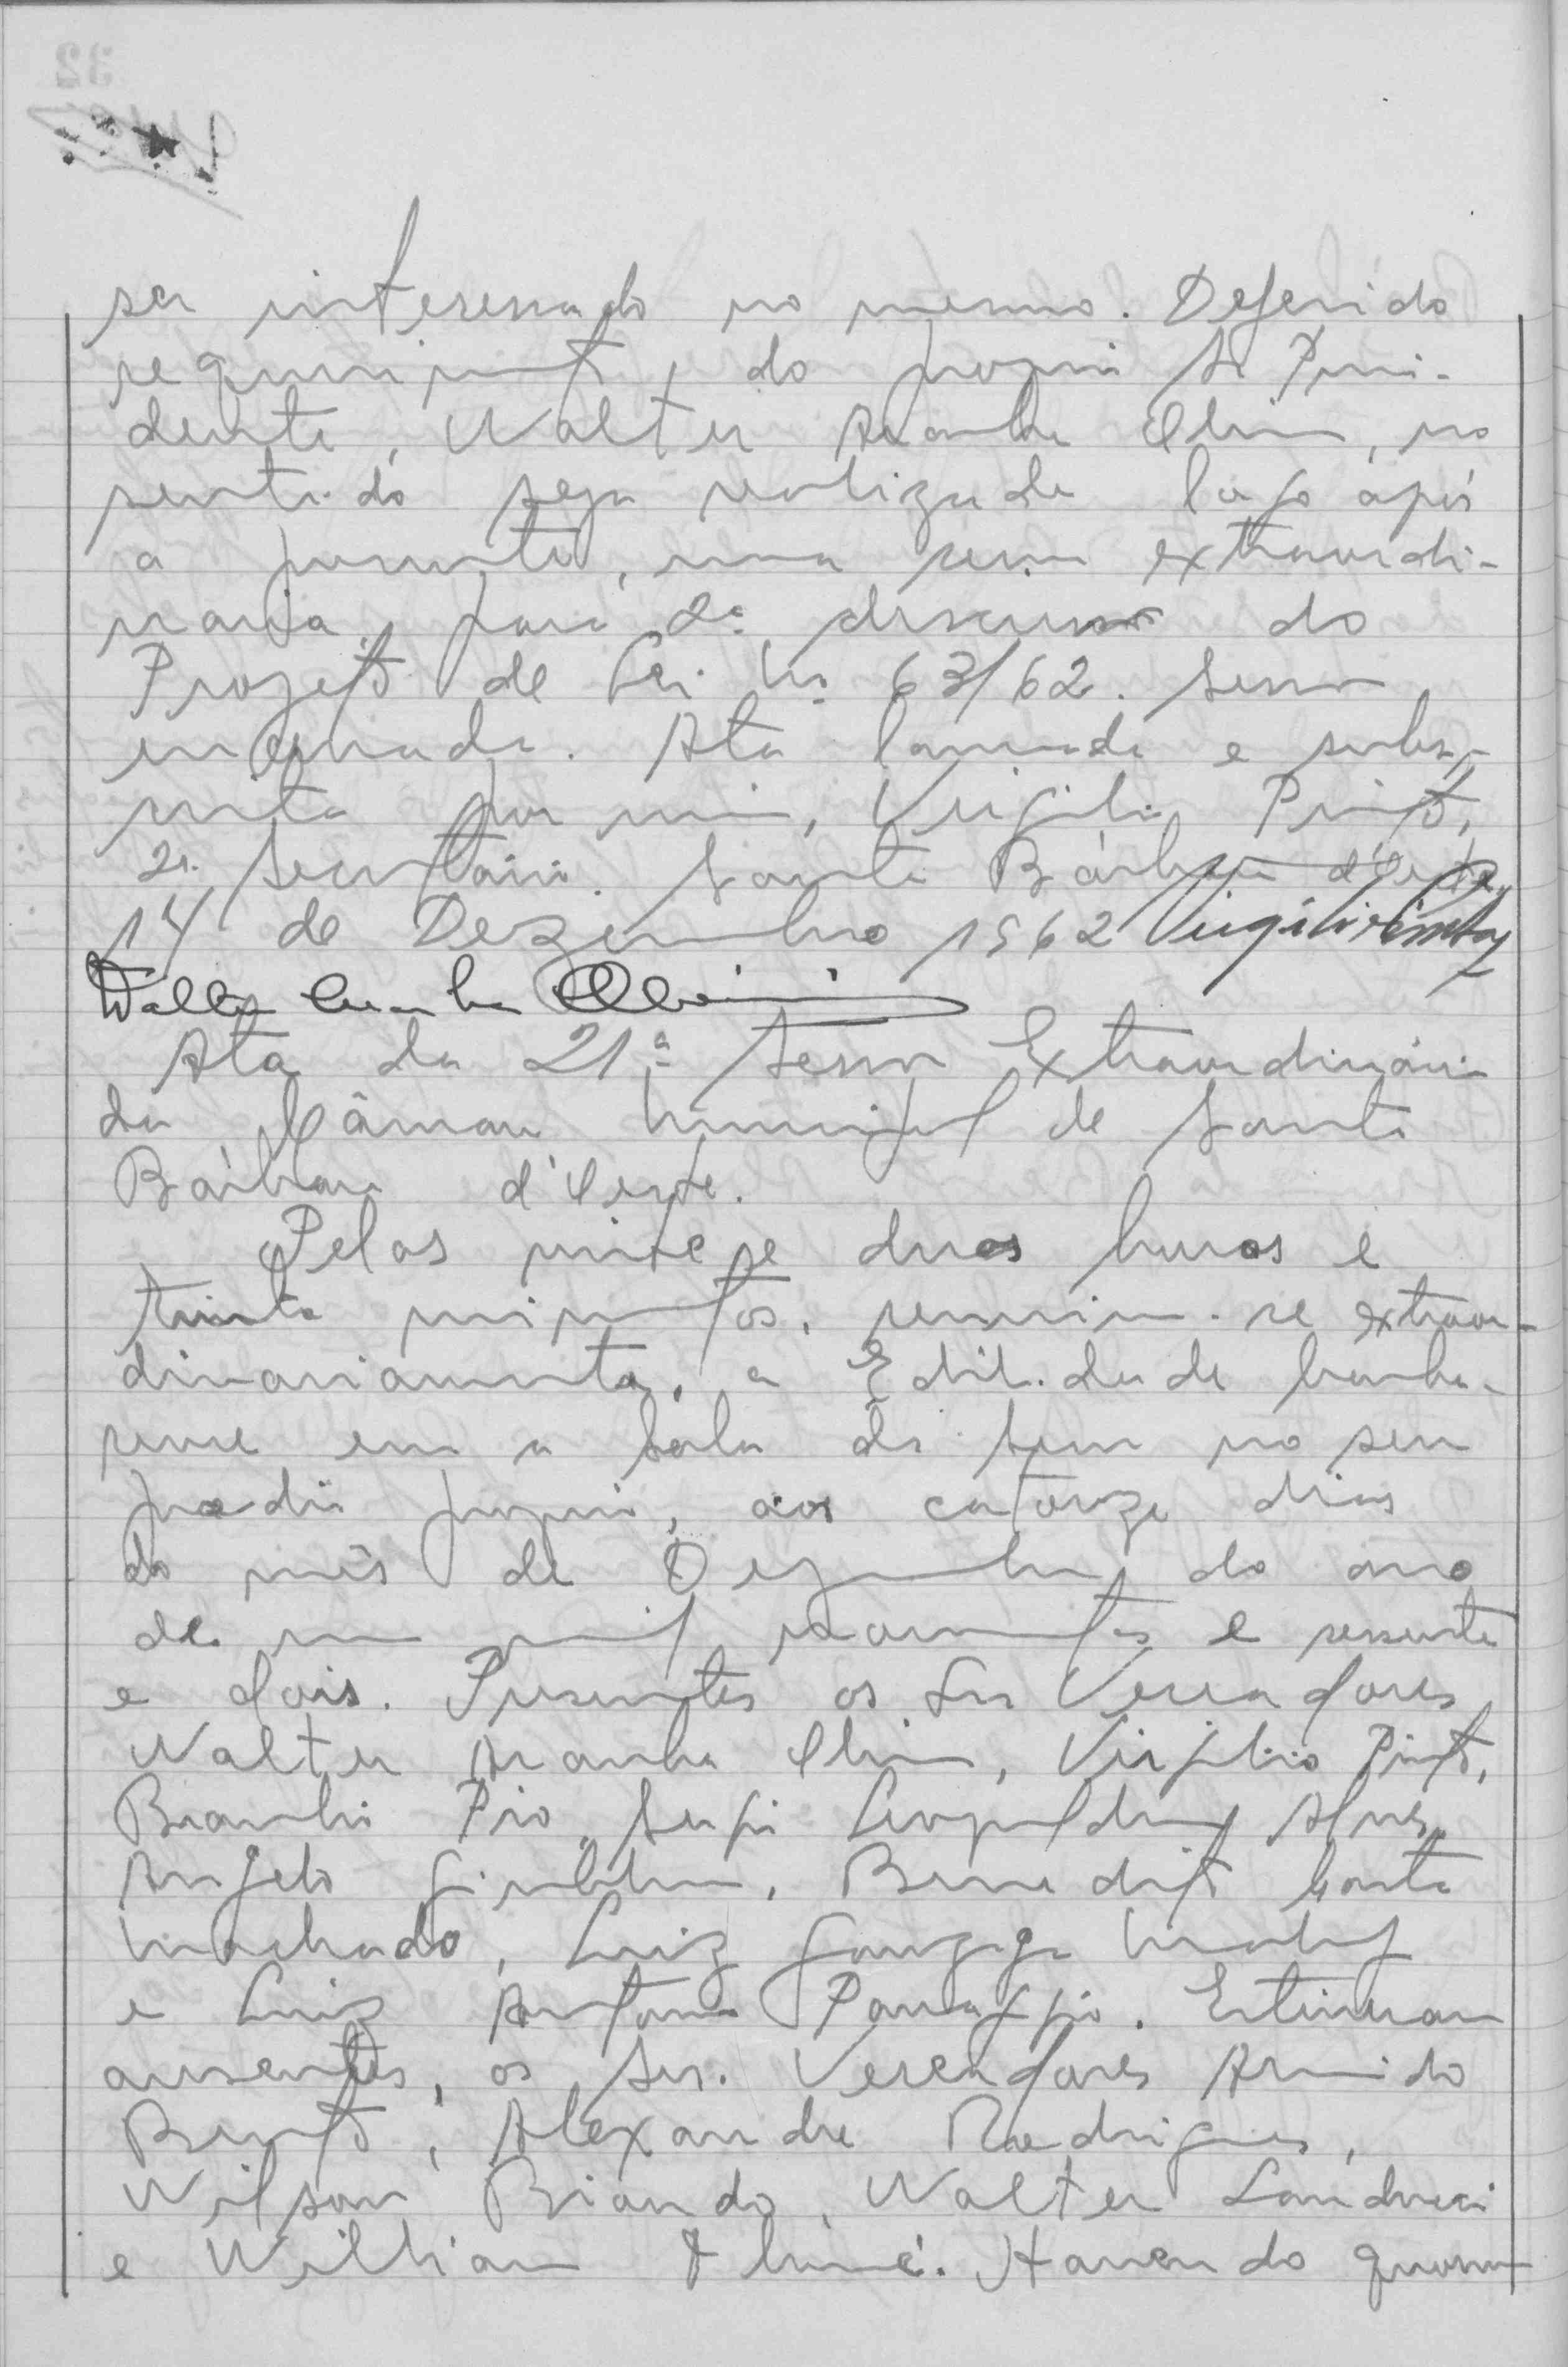 ser interessado no mesmo. Deferido
requerimento, do proprio Sr Presi-
dente, Walter Aranha Olim, no
sentido seja realizada logo após
a presente, uma sessão extraordi-
naria, para 2ª discussão do
Projeto de Lei nº 63/62. Sessão
encerrada. Ata lavrada e subs-
crita por mim, Virgilio Pinto,
2º Secretário. Santa Bárbara d'Oeste,
14 de Dezembro 1962 Virgilio Pinto
Walter Aranha
Ata da 21ª Sessão Extraordinária
da Câmara Municipal de Santa
Bárbara d'Oeste.
Pelas vinte e duas horas e
trinta minutos, reuniu-se extraor-
dinariamente, a Edilidade barba-
rense em a Sala de Sessões no seu
predio proprio, aos catorze dias
do mês de Dezembro do ano
de um mil novecentos e sessenta
e dois. Presentes os Srs Vereadores
Walter Aranha Olim, Virgilio Pinto,
Pio, Sergio Leopoldino Alves,
Angelo, Benedito Costa
Machado, Luiz Gonzaga
e Luiz Antonio. Estiveram
ausentes, os Srs. Vereadores Armido
Bento, Alexandre Rodrigues,
Wilson, Walter Landucci
e Willian. Havendo quorum